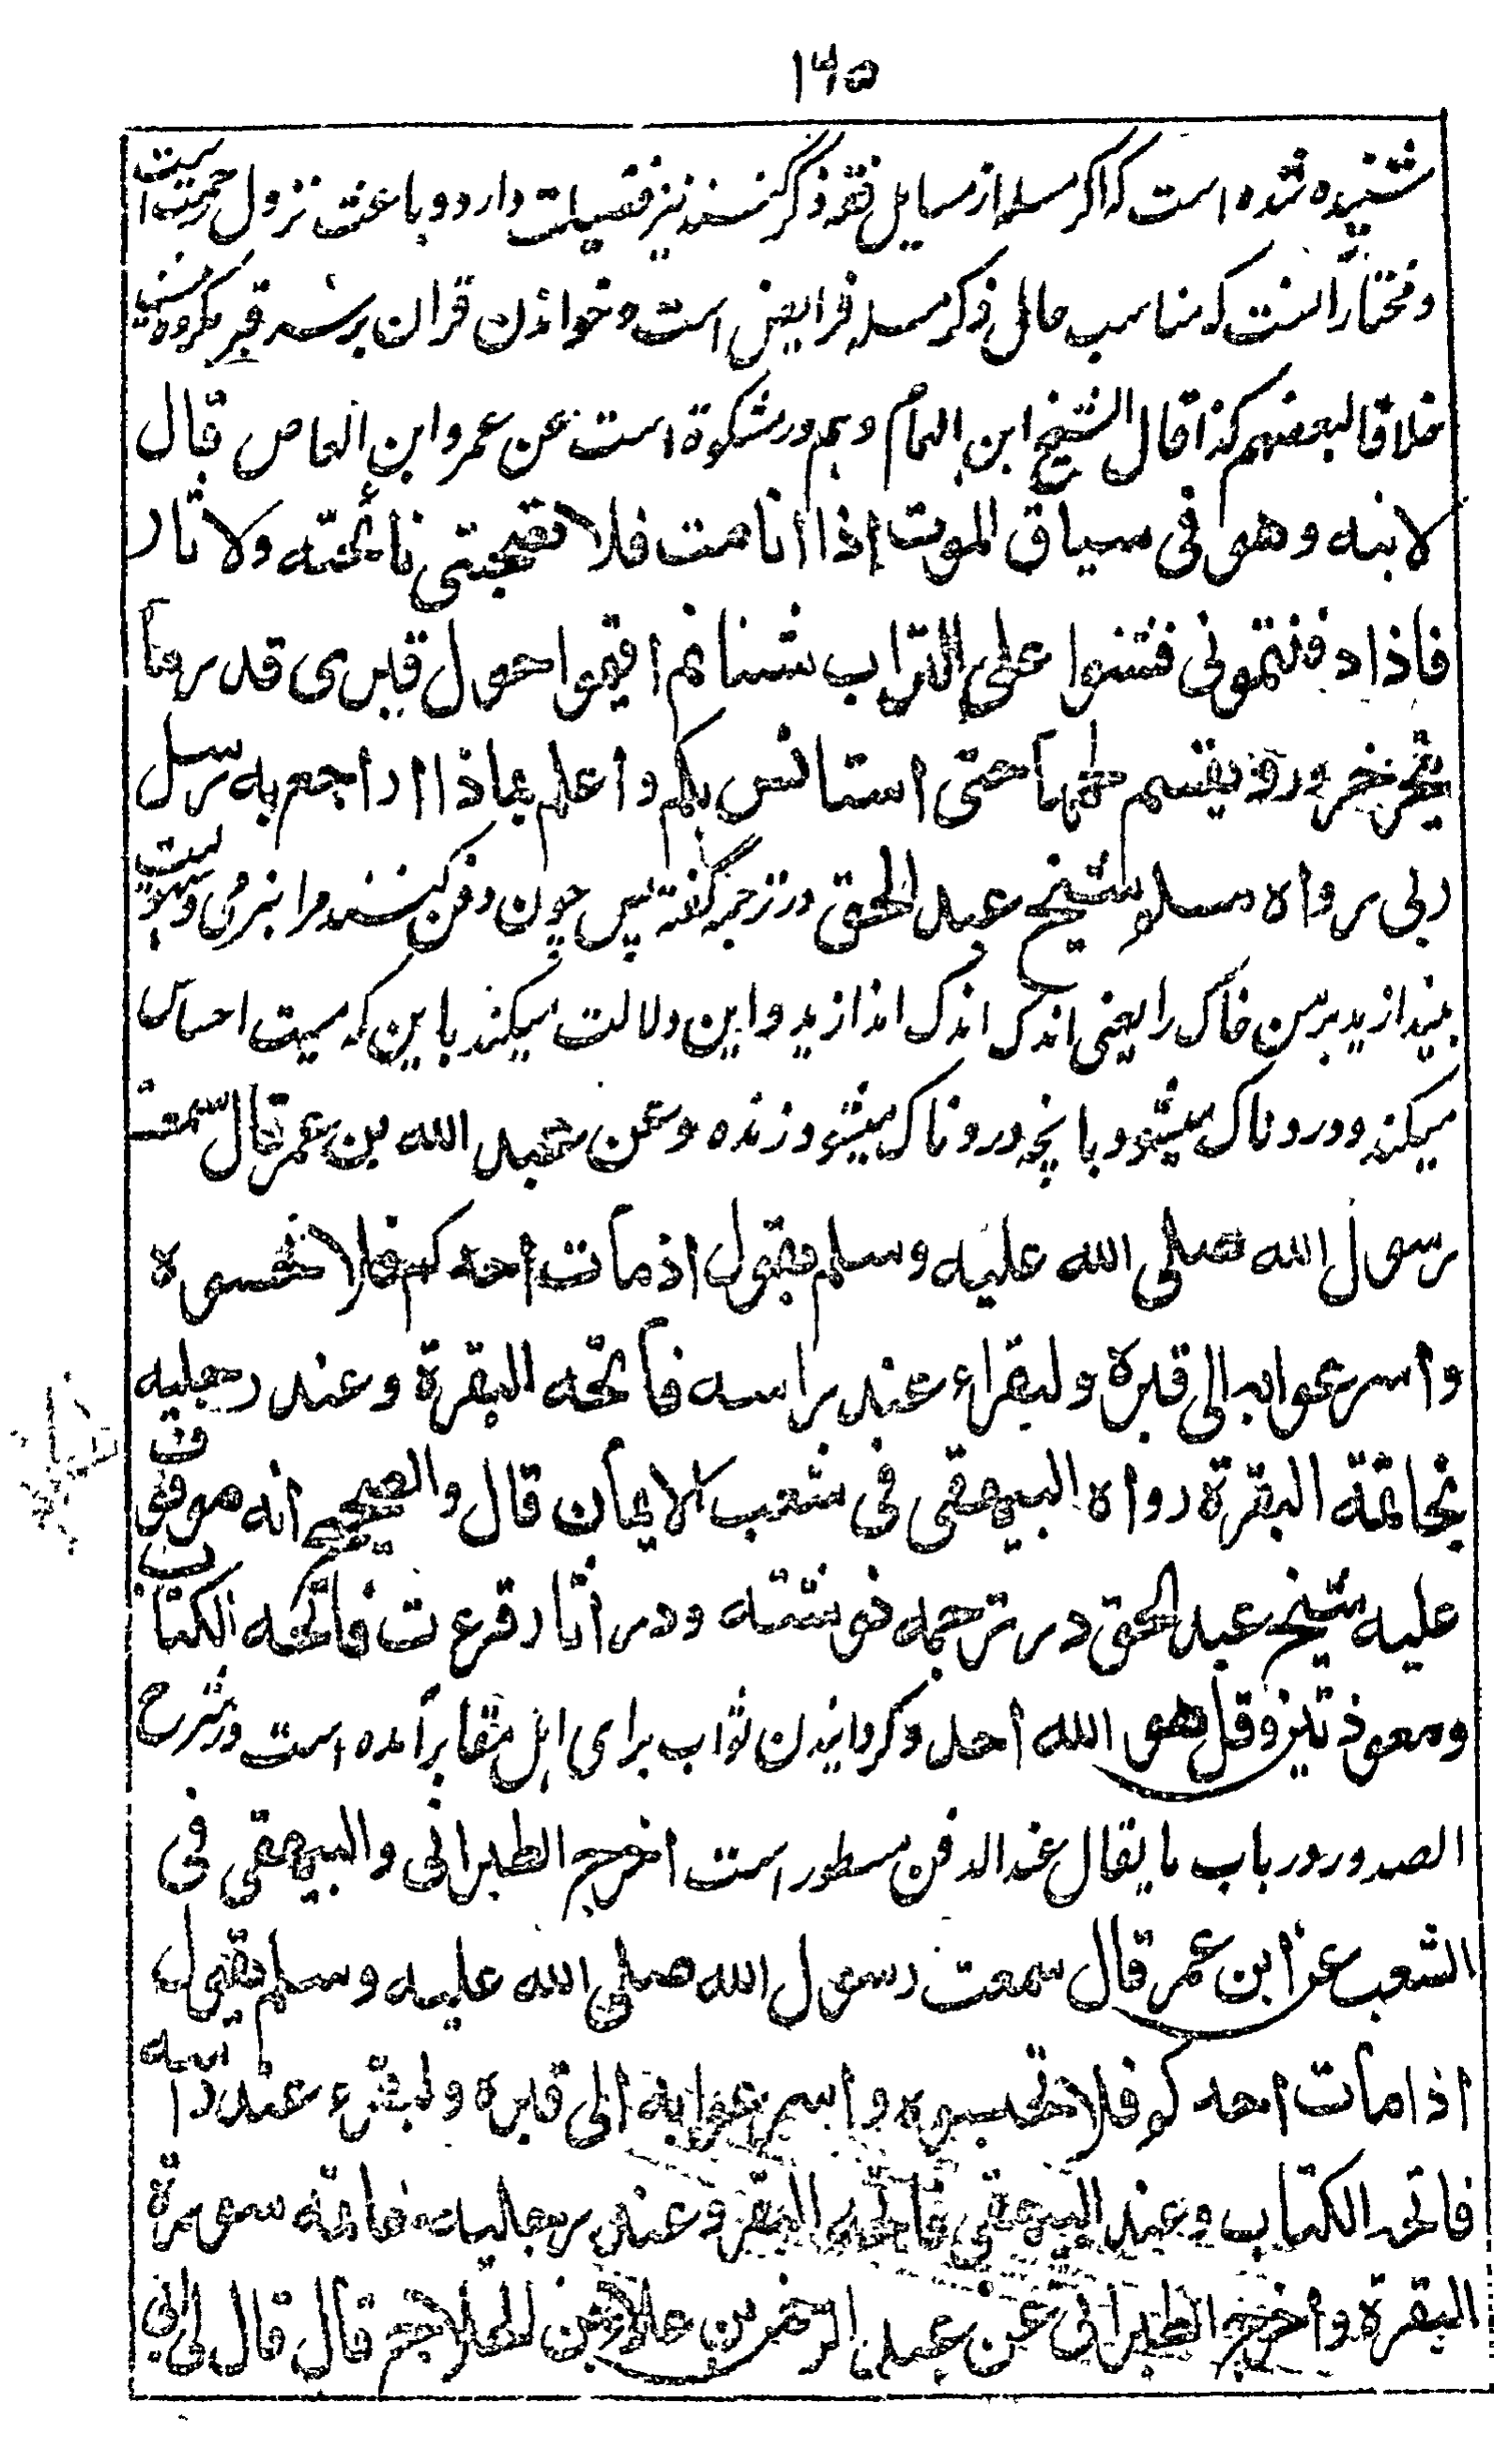 ١٦٥
شنیده شده است که اگر مسله از مسایل فقه ذکر کنند نیز فضیلت دارد و باعث نزول رحمت است
و مختار آنست که مناسب حال ذکر مسله فرایض است و خواندن قران بر سر قبر مکروه نیست
خلافا لبعضهم کذا قال الشیخ ابن الهمام و هم در مشکوة است عن عمرو ابن العاص قال
لابنه وهو فی سیاق الموت اذا انا مت فلا تصحبنی نائحته ولا نار
فاذا دفنتمونی فشنوا علی التراب شنا ثم اقیموا حول قبری قدر ما
ینحر خرور و یقسم لحمها حتی استانس بکم واعلم بماذا اراجع به رسل
ربی رواه مسلم شیخ عبد الحق در ترجمه گفته پس چون دفن کنید مرا بنرمی و سهولت
بیندازید بر من خاک را یعنی اندک اندک اندازید و این دلالت میکند باین که میت احساس
میکند و دردناک میشود بانچه دردناک میشود زنده وعن عبد الله بن عمر قال سمعت
رسول الله صلی الله علیه وسلم یقول اذ مات احدکم فلا تحبسوه
واسرعوا به الی قبره ولیقراء عند راسه فاتحه البقرة وعند رجلیه
بخاتمة البقرة رواه البیهقی فی شعب الایمان قال والصحیح انه موقوف
علیه شیخ عبد الحق در ترجمه نوشته ودر اثار قرءت فاتحه الکتاب
ومعوذتین وقل هو الله احد و گردانیدن ثواب برای اهل مقابر آمده است و در شرح
الصدور در باب ما یقال عند الدفن مسطور است اخرج الطبرانی والبیهقی فی
الشعب عن ابن عمر قال سمعت رسول الله صلی الله علیه وسلم یقول
اذا مات احدکم فلا تحبسوه واسرعوا به الی قبره ولیقرء عند راسه
فاتحه الکتاب وعند البیهقی فاتحه البقره وعند رجلیه خاتمه سورة
البقرة واخرج الطبرانی عن عبد الرحمن بن علاء بن اللجلاج قال قال لی ابی